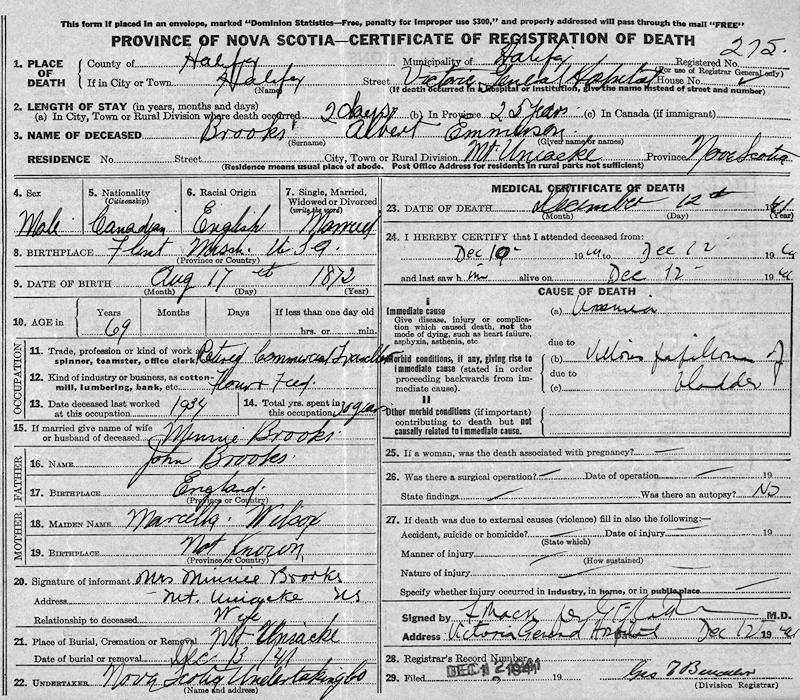 This form if placed in an envelope, marked "Dominion Statistics—Free, penalty for improper use $300," and properly addressed will pass through the mail "FREE"
PROVINCE OF NOVA SCOTIA—CERTIFICATE OF REGISTRATION OF DEATH
275.
1. PLACE OF DEATH
County of Halifax Municipality of Halifax Registered No.
(For use of Registrar General only)
If in City or Town Halifax Street Victoria General Hospital House No.
(Name) (If death occurred in a Hospital or Institution, give the name instead of street and number)
2. LENGTH OF STAY (in years, months and days)
(a) In City, Town or Rural Division where death occurred 2 days (b) In Province 25 years (c) In Canada (if immigrant)
3. NAME OF DECEASED Brooks Albert Emmerson.
(Surname) (Given name or names)
RESIDENCE No. Street City, Town or Rural Division Mt Uniacke Province Nova Scotia
(Residence means usual place of abode. Post Office Address for residents in rural parts not sufficient)
4. Sex
Male
5. Nationality
(Citizenship)
Canadian
6. Racial Origin
English
7. Single, Married, Widowed or Divorced
(write the word)
Married
8. BIRTHPLACE Flint Mich. U.S.A.
(Province or Country)
9. DATE OF BIRTH Aug 17th 1872
(Month) (Day) (Year)
10. AGE in
Years Months Days If less than one day
69 hrs. or min.
OCCUPATION
11. Trade, profession or kind of work as spinner, teamster, office clerk, Retired Commercial Traveller
12. Kind of industry or business, as cotton-mill, lumbering, bank, etc. Flour & Feed.
13. Date deceased last worked at this occupation 1934
14. Total yrs. spent in this occupation 30 years
15. If married give name of wife or husband of deceased Minnie Brooks.
FATHER
16. NAME John Brooks.
17. BIRTHPLACE England.
(Province or Country)
MOTHER
18. MAIDEN NAME Marcella. Wilcox
19. BIRTHPLACE Not Known
(Province or Country)
20. Signature of informant Mrs Minnie Brooks
Address Mt. Uniacke NS
Relationship to deceased Wife
21. Place of Burial, Cremation or Removal Mt Uniacke
Date of burial or removal Dec 13 41
22. UNDERTAKER Nova Scotia Undertaking Co
(Name and address)
MEDICAL CERTIFICATE OF DEATH
23. DATE OF DEATH December 12th 1941
(Month) (Day) (Year)
24. I HEREBY CERTIFY that I attended deceased from:
Dec 10 1941 to Dec 12 1941
and last saw him alive on Dec 12 1941
CAUSE OF DEATH
I
Immediate cause
Give disease, injury or complication which caused death, not the mode of dying, such as heart failure, asphyxia, asthenia, etc
(a) Uraemia
due to
Morbid conditions, if any, giving rise to immediate cause (stated in order proceeding backwards from immediate cause).
(b) Villous papilloma of bladder
due to
(c)
II
Other morbid conditions (if important) contributing to death but not causally related to immediate cause.
25. If a woman, was the death associated with pregnancy?
26. Was there a surgical operation? Date of operation 19
State findings Was there an autopsy? No
27. If death was due to external causes (violence) fill in also the following:—
Accident, suicide or homicide? Date of injury 19
(State which)
Manner of injury
(How sustained)
Nature of injury
Specify whether injury occurred in Industry, in home, or in public place
Signed by M.D.
Address Victoria General Hospital Dec 12 1941
28. Registrar's Record Number
29. Filed DEC 12 1941 19
(Division Registrar)